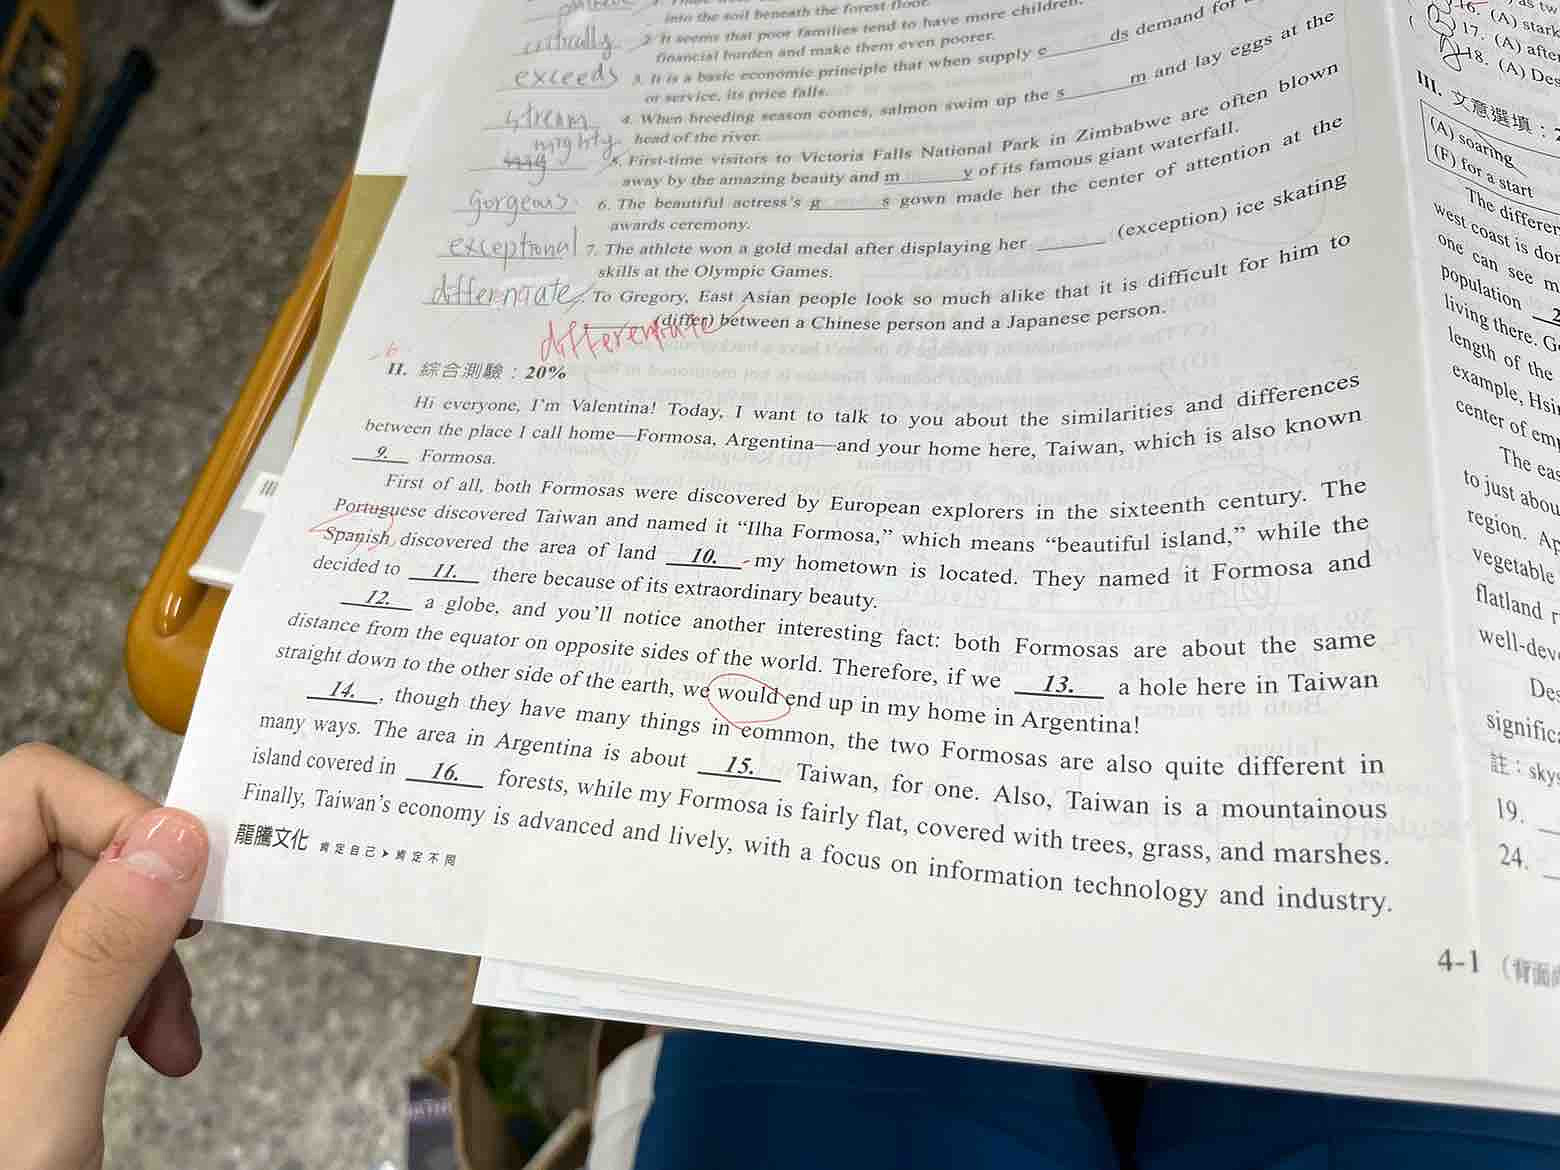 into the soil beneath the forest floor.
critically 2. It seems that poor families tend to have more children.
financial burden and make them even poorer.
exceeds 3. It is a basic economic principle that when supply e______ds demand for
or service, its price falls.
stream 4. When breeding season comes, salmon swim up the s______m and lay eggs at the
head of the river.
mighty 5. First-time visitors to Victoria Falls National Park in Zimbabwe are often blown
away by the amazing beauty and m______y of its famous giant waterfall.
gorgeous 6. The beautiful actress's g______s gown made her the center of attention at the
awards ceremony.
exceptional 7. The athlete won a gold medal after displaying her ______ (exception) ice skating
skills at the Olympic Games.
To Gregory, East Asian people look so much alike that it is difficult for him to
______ (differ) between a Chinese person and a Japanese person.
differentiate
-6
II. 綜合測驗：20%
Hi everyone, I'm Valentina! Today, I want to talk to you about the similarities and differences
between the place I call home—Formosa, Argentina—and your home here, Taiwan, which is also known
9. Formosa.
First of all, both Formosas were discovered by European explorers in the sixteenth century. The
Portuguese discovered Taiwan and named it "Ilha Formosa," which means "beautiful island," while the
Spanish discovered the area of land 10. my hometown is located. They named it Formosa and
decided to 11. there because of its extraordinary beauty.
12. a globe, and you'll notice another interesting fact: both Formosas are about the same
distance from the equator on opposite sides of the world. Therefore, if we 13. a hole here in Taiwan
straight down to the other side of the earth, we would end up in my home in Argentina!
14. , though they have many things in common, the two Formosas are also quite different in
many ways. The area in Argentina is about 15. Taiwan, for one. Also, Taiwan is a mountainous
island covered in 16. forests, while my Formosa is fairly flat, covered with trees, grass, and marshes.
Finally, Taiwan's economy is advanced and lively, with a focus on information technology and industry.
龍騰文化 肯定自己➤肯定不同
4-1 (背面
16. (A) stark
17. (A) afte
18. (A) Des
III. 文意選填：2
(A) soaring
(F) for a start
The differen
west coast is dor
one can see m
population 2
living there. G
length of the
example, Hsin
center of em
The eas
to just abou
region. Ap
vegetable
flatland r
well-deve
Des
significa
註：skys
19.
24.